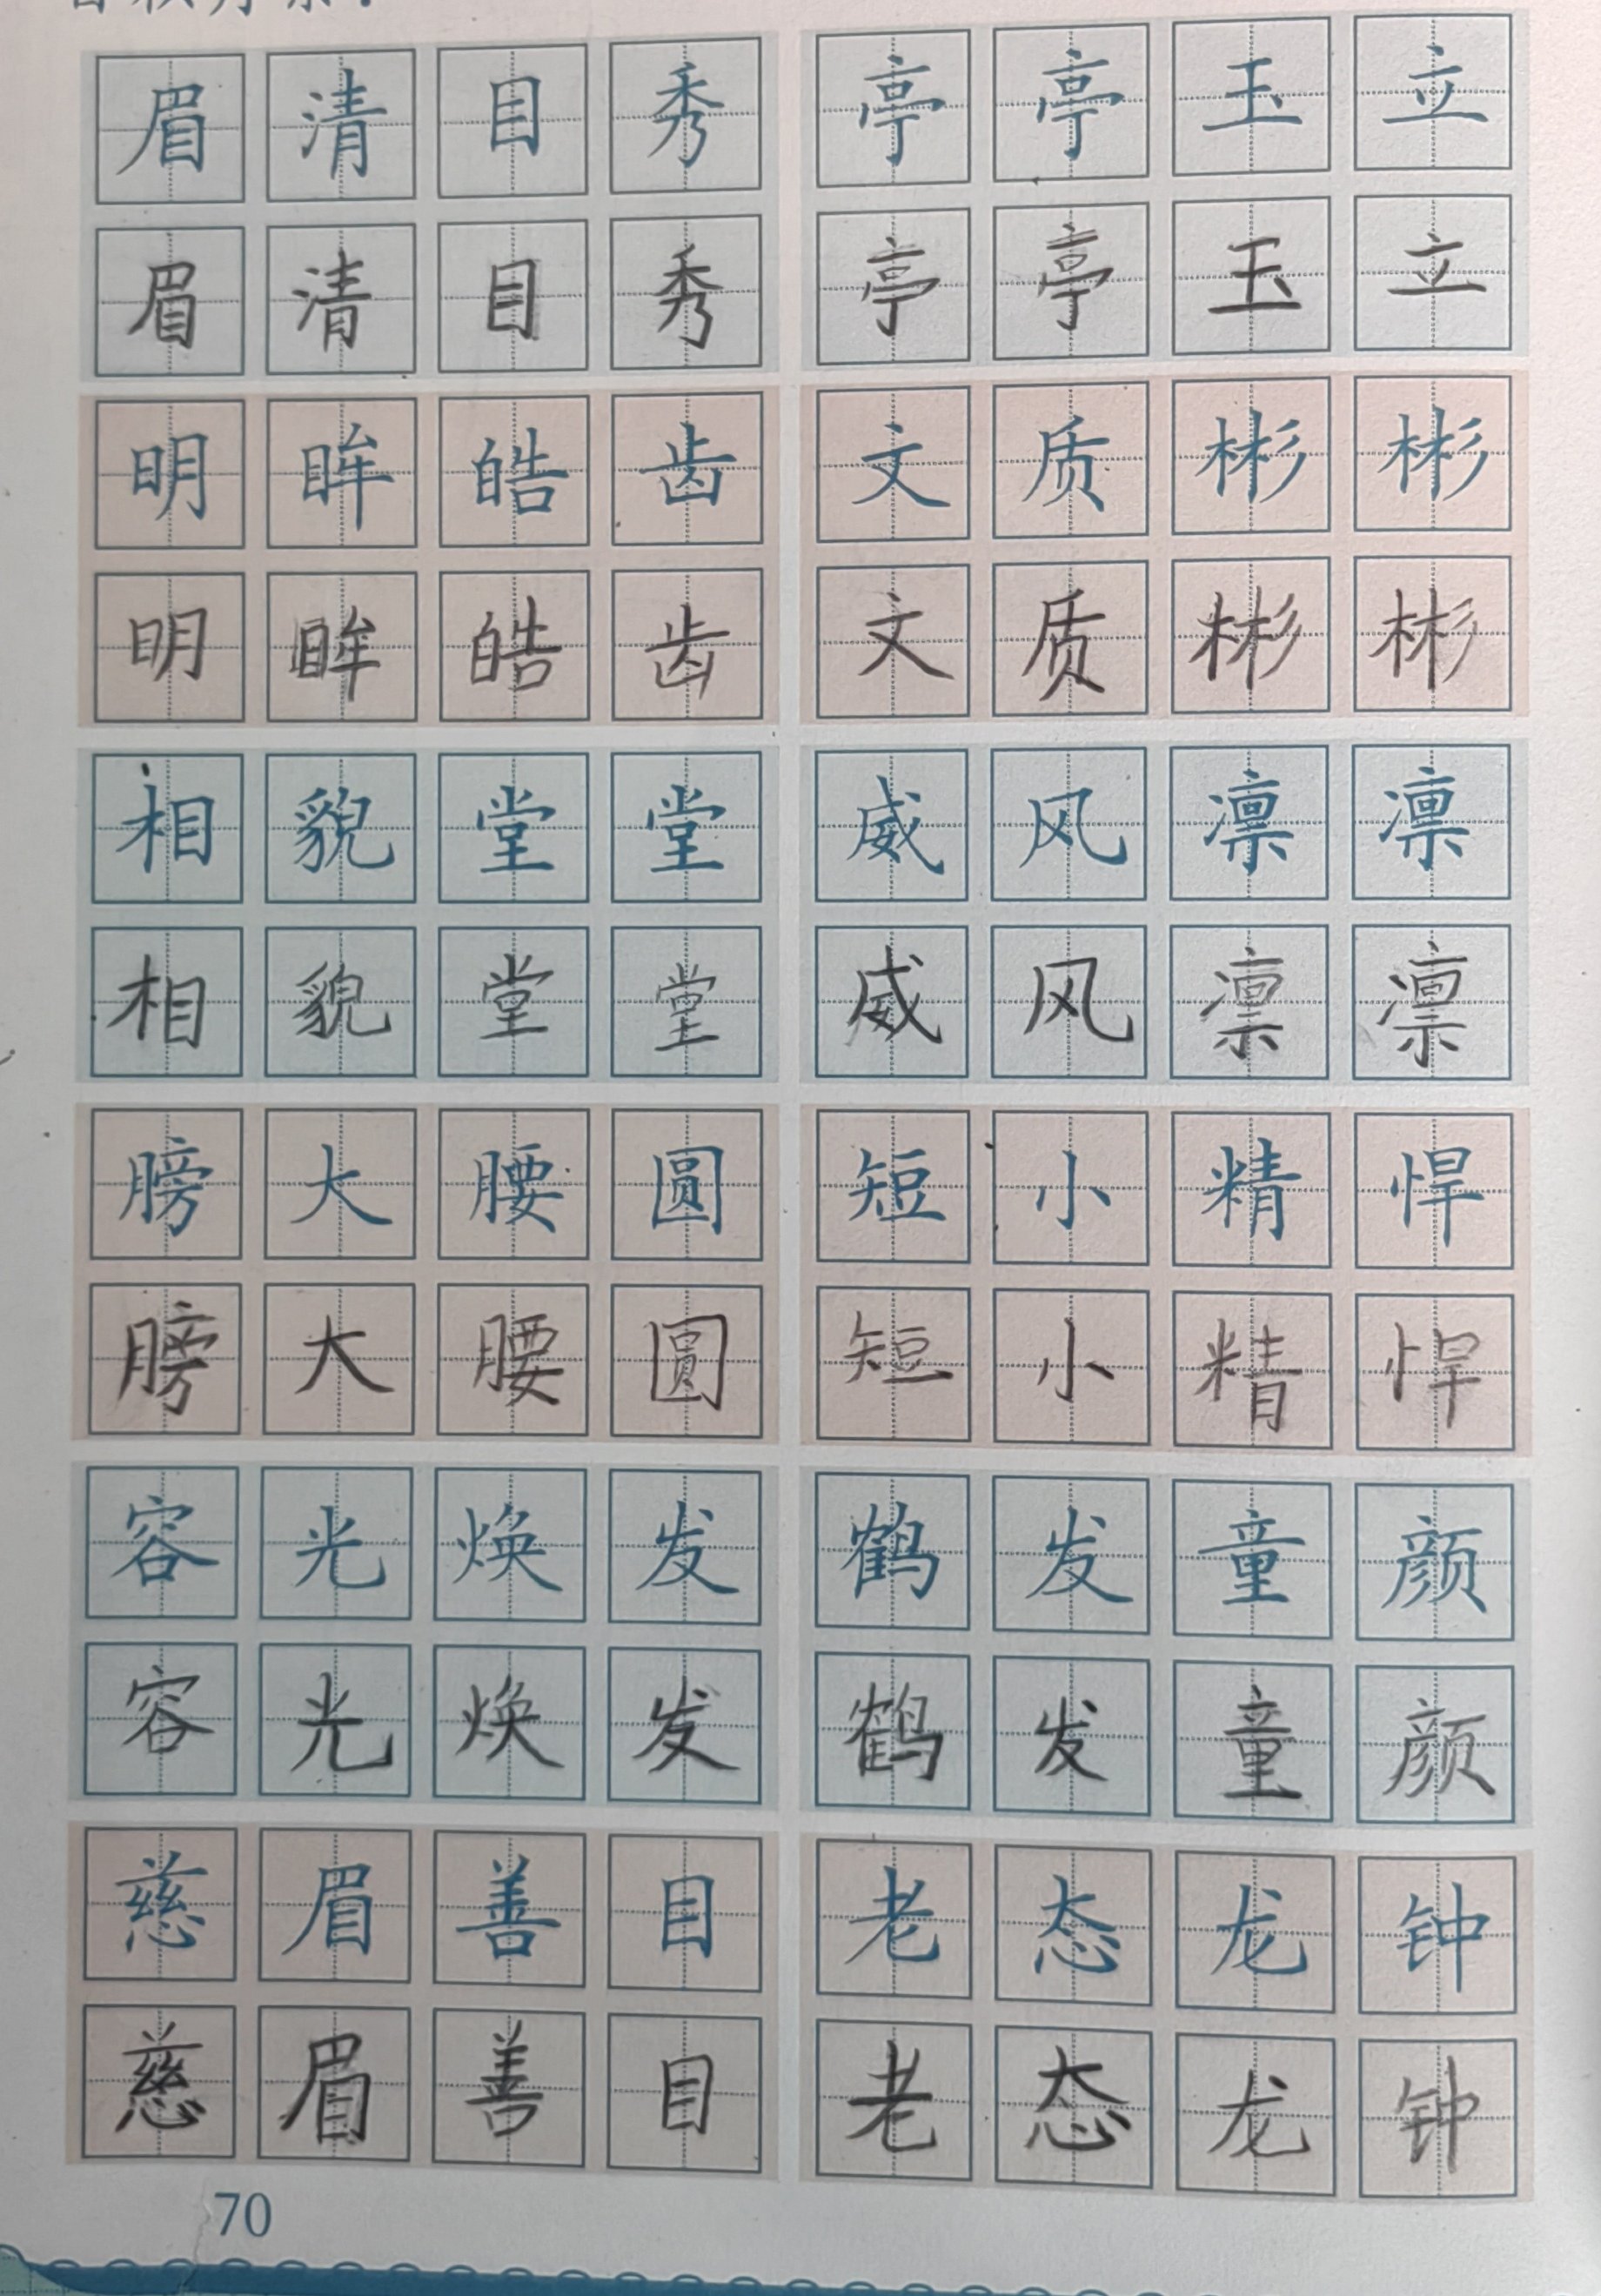 眉清目秀 亭亭玉立
眉清目秀 亭亭玉立
明眸皓齿 文质彬彬
明眸皓齿 文质彬彬
相貌堂堂 威风凛凛
相貌堂堂 威风凛凛
膀大腰圆 短小精悍
膀大腰圆 短小精悍
容光焕发 鹤发童颜
容光焕发 鹤发童颜
慈眉善目 老态龙钟
慈眉善目 老态龙钟
70